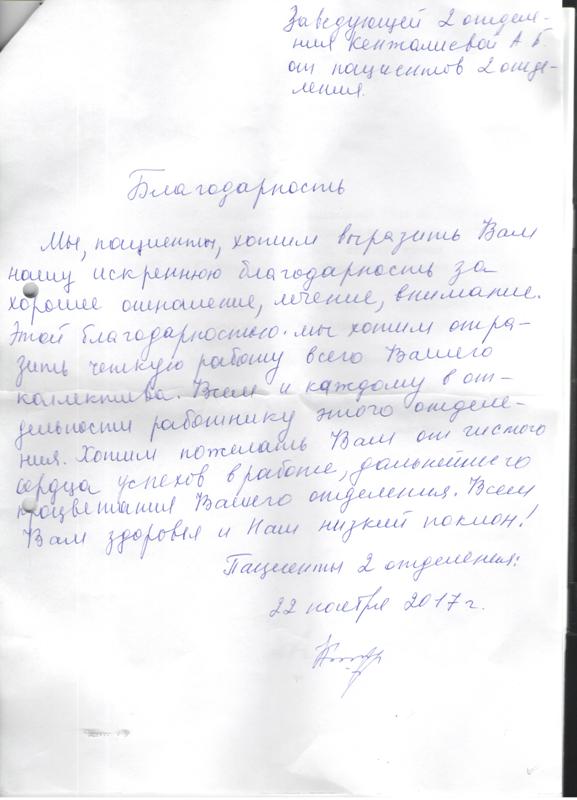 Заведующей 2 отделе-
ния Кенжалиевой А.Б.
от пациентов 2 отде-
ления.
Благодарность
Мы, пациенты, хотим выразить Вам
нашу искреннюю благодарность за
хорошее отношение, лечение, внимание.
Этой благодарностью мы хотим отра-
зить четкую работу всего Вашего
коллектива. Всем и каждому в от-
дельности работнику этого отделе-
ния. Хотим пожелать Вам от чистого
сердца успехов в работе, дальнейшего
процветания Вашего отделения. Всем
Вам здоровья и Наш низкий поклон!
Пациенты 2 отделения:
22 ноября 2017 г.